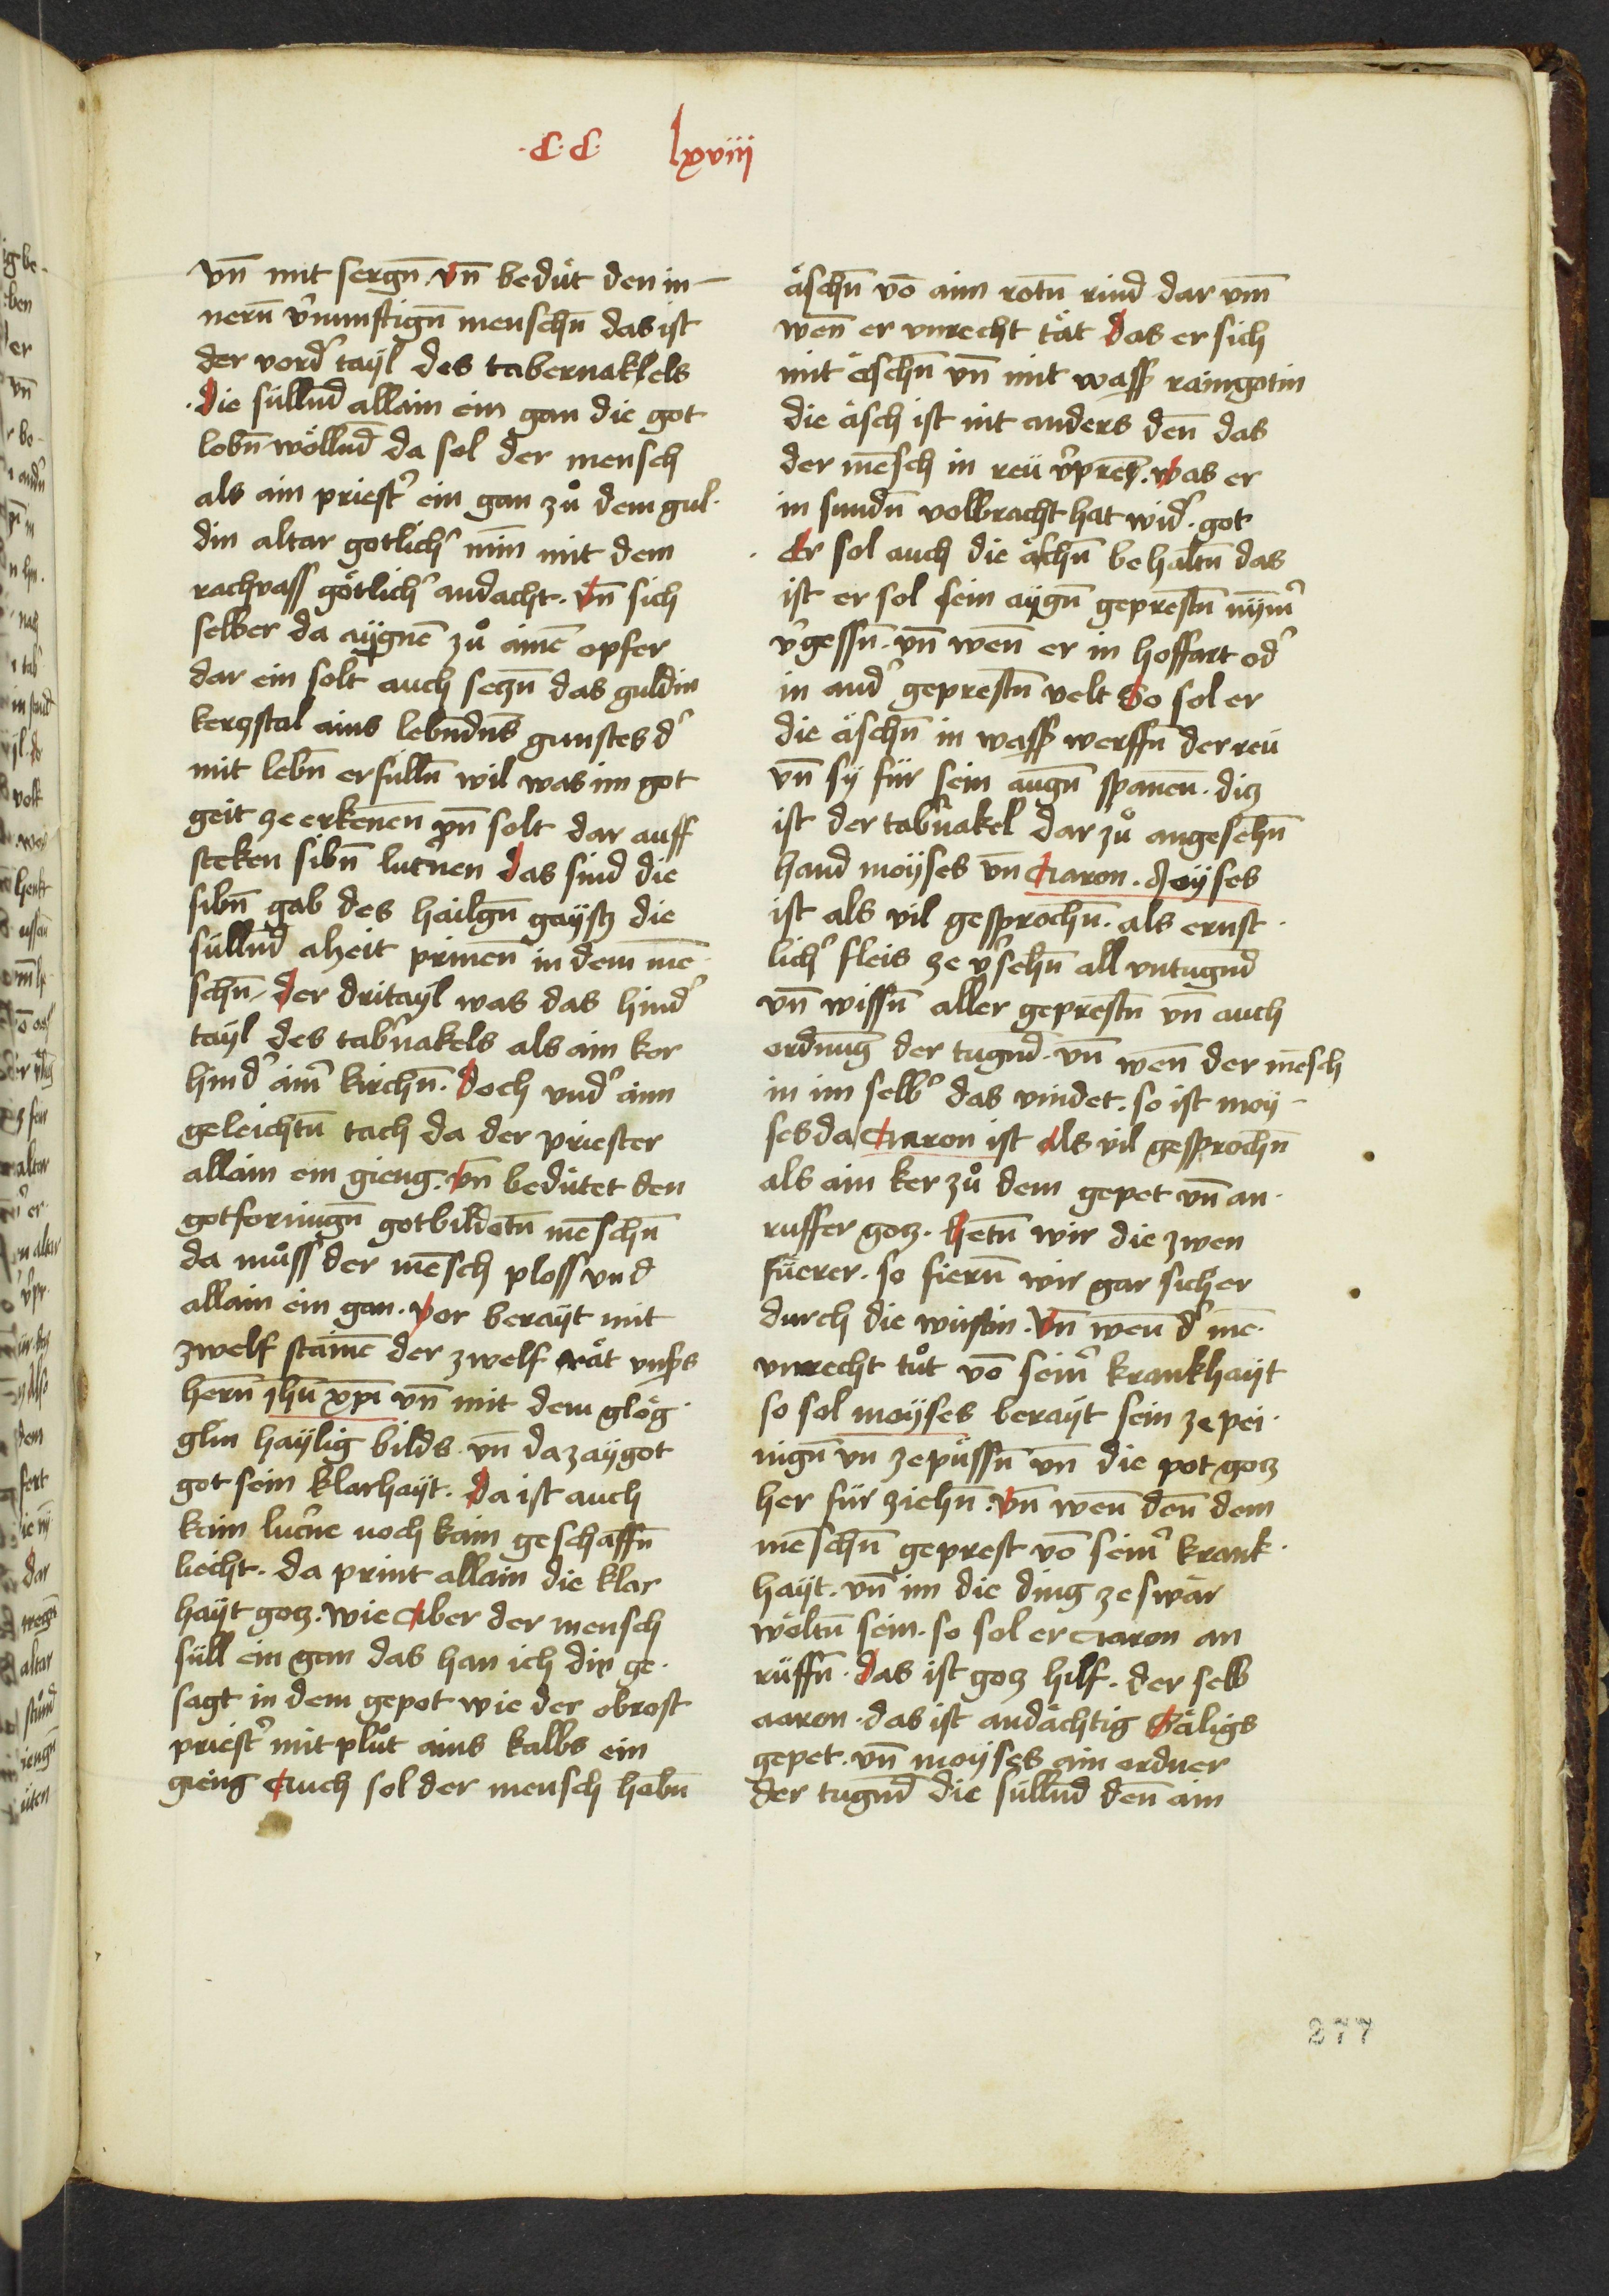 ·C·C· lxviii
vn̄ mit sergn̄. vn̄ bedüt den in-
nern̄ v̾nunftign̄ menschn̄ das ist
der vord̾ tayl des tabernakels
.die süllnd̄ allain ein gan die got
lobn̄ wöllnd̄ da sol der mensch
als ain priest̾ ein gan zů dem gul-
din altar gotlich̾ min̄ mit dem
rachvass götlich̾ andacht. vn̄ sich
selber da aygnē zů ainē opfer
dar ein solt auch seczn̄ das guldin
kerzstal ains lebndn̄s gunstes d̾
mit lebn̄ erfülln̄ wil was im got
geit ze erkenen̄ vn̄ solt dar auff
steken sibn̄ luc̾nen das sind die
sibn̄ gab des hailgn̄ gaystz die
süllnd̄ alzeit prinen̄ in dem mē-
schn̄. der dritayl was das hind̾
tayl des tab̾nakels als ain kor
hind̾ aim̾ kirchn̄. doch vnd̾ ainn
geleichtn̄ tach da der priester
allain ein gieng. vn̄ bedütet den
gotformign̄ gotbildetn̄ mēschn̄
da můss der mēsch ploss vnd
allain ein gan. vor berayt mit
zwelf stainē der zwelf rät vnsers
hern̄ ihū xpī vn̄ mit dem glög-
glin haylig bilds. vn̄ da zaygot
got sein klarhayt. da ist auch
kain luc̾ne noch kain geschaffn̄
liecht. da print allain die klar
hayt gocz. wie aber der mensch
süll ein gan das han ich dir ge-
sagt in dem gepot wie der obrost
priest̾ mit plůt ains kalbs ein
gieng auch sol der mensch hebn̄
äschn̄ vō ainn rotn̄ rind dar vm̄
wen̄ er vnrecht tät das er sich
mit äschn̄ vn̄ mit wasser raingotin
die äsch ist nit anders den̄ das
der mēsch in reü v̾pren̄. was er
in sundn̄ volbracht hat wid̾. got
Er sol auch die äschn̄ behaltn̄ das
ist er sol sein aygn̄ geprestn̄ nym̾
v̾gessn̄. vn̄ wen̄ er in hoffart od̾
in and̾ geprestn̄ velt So sol er
die äschn̄ in wasser werffn̄ der reü
vn̄ sy für sein augn̄ spanen̄. diz
ist der tab̾nakel dar zů angesehn̄
hand moyses vn̄ Aaron. Moyses
ist als vil gesprochn̄. als ernst-
lich̾ fleis ze v̾sehn̄ all vntugnd̄
vn̄ wissn̄ aller geprestn̄ vn̄ auch
ordnunḡ der tugnd̄. vn̄ wen̄ der mēsch
in im selb̾ das vindet. so ist moy-
ses da Aaron ist als vil gesprochn̄
als ain ker zů dem gepet vn̄ an-
ruffer gocz. hetn̄ wir die zwen
füerer. so fiern̄ wir gar sicher
durch die wüstin. vn̄ wen̄ d̾ mē-
vnrecht tůt vō seim̾ krankhayt
so sol moyses berayt sein ze pei-
nign̄ vn̄ ze püssn̄ vn̄ die pot gocz
her für ziehn̄. vn̄ wen̄ den̄ dem
mēschn̄ geprest vō seim̾ krank-
hayt. vn̄ im die ding ze swär
wöltn̄ sein. so sol er Aaron an
rüffn̄. das ist gocz hilf. der selb
aaron. das ist andächtig Säligs
gepet. vn̄ moyses ain ordner
der tugnd̄ die süllnd̄ den̄ ain
277